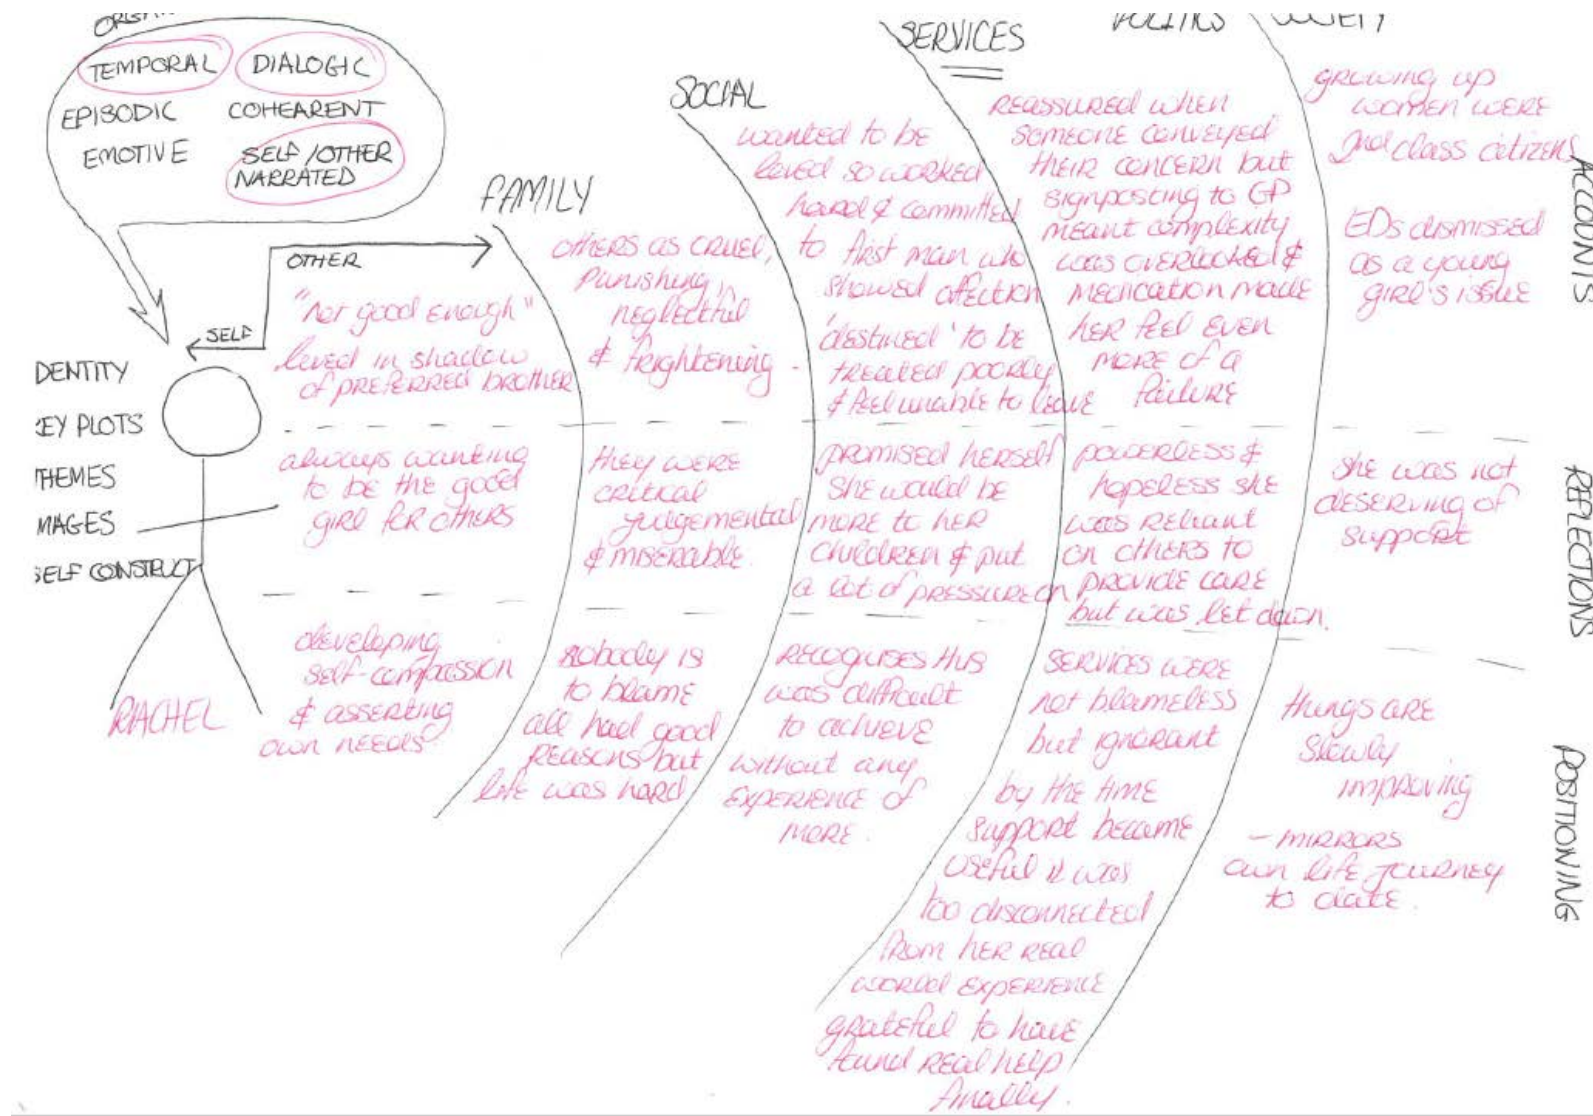 TEMPORAL
DIALOGIC
EPISODIC
COHEARENT
EMOTIVE
SELF/OTHER
NARRATED
OTHER
SELF
DENTITY
EY PLOTS
THEMES
MAGES
SELF CONSTRUCT
RACHEL
"not good enough"
lived in shadow
of preferred brother
always wanting
to be the good
girl for others
developing
self-compassion
& asserting
own needs
FAMILY
others as cruel,
punishing,
neglectful
& frightening.
they were
critical
judgemental
& miserable.
nobody is
to blame
all had good
reasons but
life was hard
SOCIAL
wanted to be
loved so worked
hard & committed
to first man who
showed affection
'destined' to be
treated poorly
& feel unable to leave
promised herself
she would be
more to her
children & put
a lot of pressure on
recognises this
was difficult
to achieve
without any
experience of
more.
SERVICES
reassured when
someone conveyed
their concern but
signposting to GP
meant complexity
was overlooked &
medication made
her feel even
more of a
failure
powerless &
hopeless she
was reliant
on others to
provide care
but was let down.
services were
not blameless
but ignorant
by the time
support became
useful it was
too disconnected
from her real
world experience
grateful to have
found real help
finally.
POLITICS
growing up
women were
2nd class citizens
EDs dismissed
as a young
girl's issue
she was not
deserving of
support
things are
slowly
improving
- mirrors
own life journey
to date.
ACCOUNTS
REFLECTIONS
POSITIONING